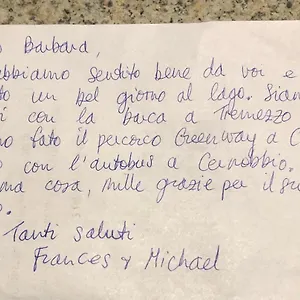 o Barbara,
bbiamo sentito bene da voi e
to un bel giorno al lago. Siam
i con la barca a Tremezzo
no fato il percorso Greenway a C
o con l'autobus a Cernobbio.
ma cosa, mille grazie per il
o.
Tanti saluti
Frances + Michael